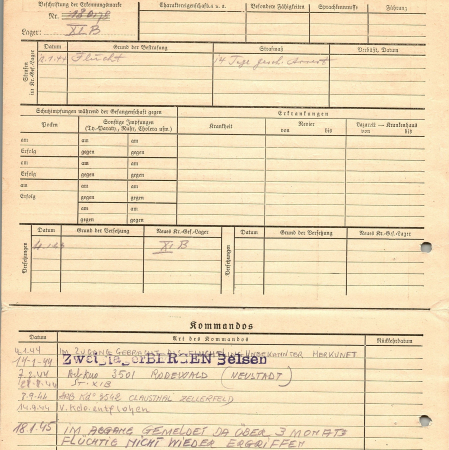 Beschriftung der Erkennungsmarke
Nr.
Lager: XI B
Charaktereigenschaften u. a.
Besondere Fähigkeiten
Sprachkenntnisse
Führung
Strafen im Kr.-Gef.-Lager
Datum Grund der Bestrafung Strafmaß Verbüßt, Datum
Flucht 14 Tage gesch. Arrest
Schutzimpfungen während der Gefangenschaft gegen
Erkrankungen
Pocken
Sonstige Impfungen
(Ty.-Paraty., Ruhr, Cholera usw.)
Krankheit
Revier
von bis
Lazarett – Krankenhaus
von bis
am am am
Erfolg gegen gegen
am am am
Erfolg gegen gegen
am am am
Erfolg gegen gegen
am am
gegen gegen
Versetzungen
Datum Grund der Versetzung Neues Kr.-Gef.-Lager
Versetzungen
Datum Grund der Versetzung Neues Kr.-Gef.-Lager
XI B
Kommandos
Datum Art des Kommandos Rückkehrdatum
4.1.44 IM ZUGANG GEBRACHT ALS FLÜCHTLING UNBEKANNTER HERKUNFT
14-1-44 Zweiglager BERGEN Belsen
7.2.44 3501 RODEWALD (NEUSTADT)
XIB
7.9.44 3548 CLAUSTHAL ZELLERFELD
14.9.44 V. Kdo. entflohen
18.1.45 IM ABGANG GEMELDET DA ÜBER 3 MONATE
FLÜCHTIG NICHT WIEDER ERGRIFFEN